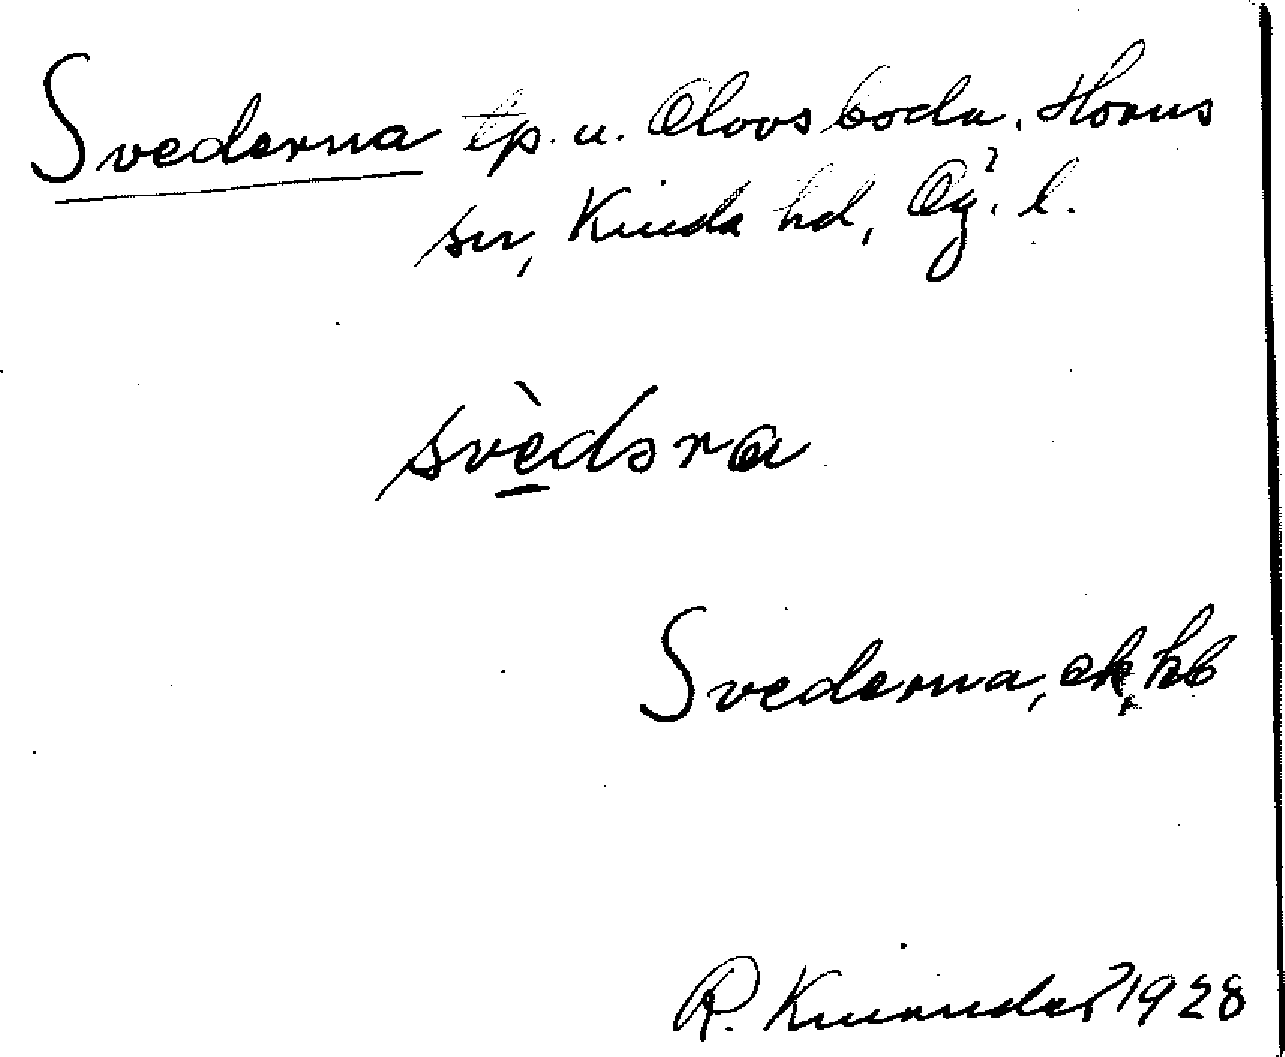 Svederna tp. u. Olovsboda, Horns
sn, Kinda hd, Ög. l.
svèdəra
Svederna, ek, hb
R. Kinander 1928